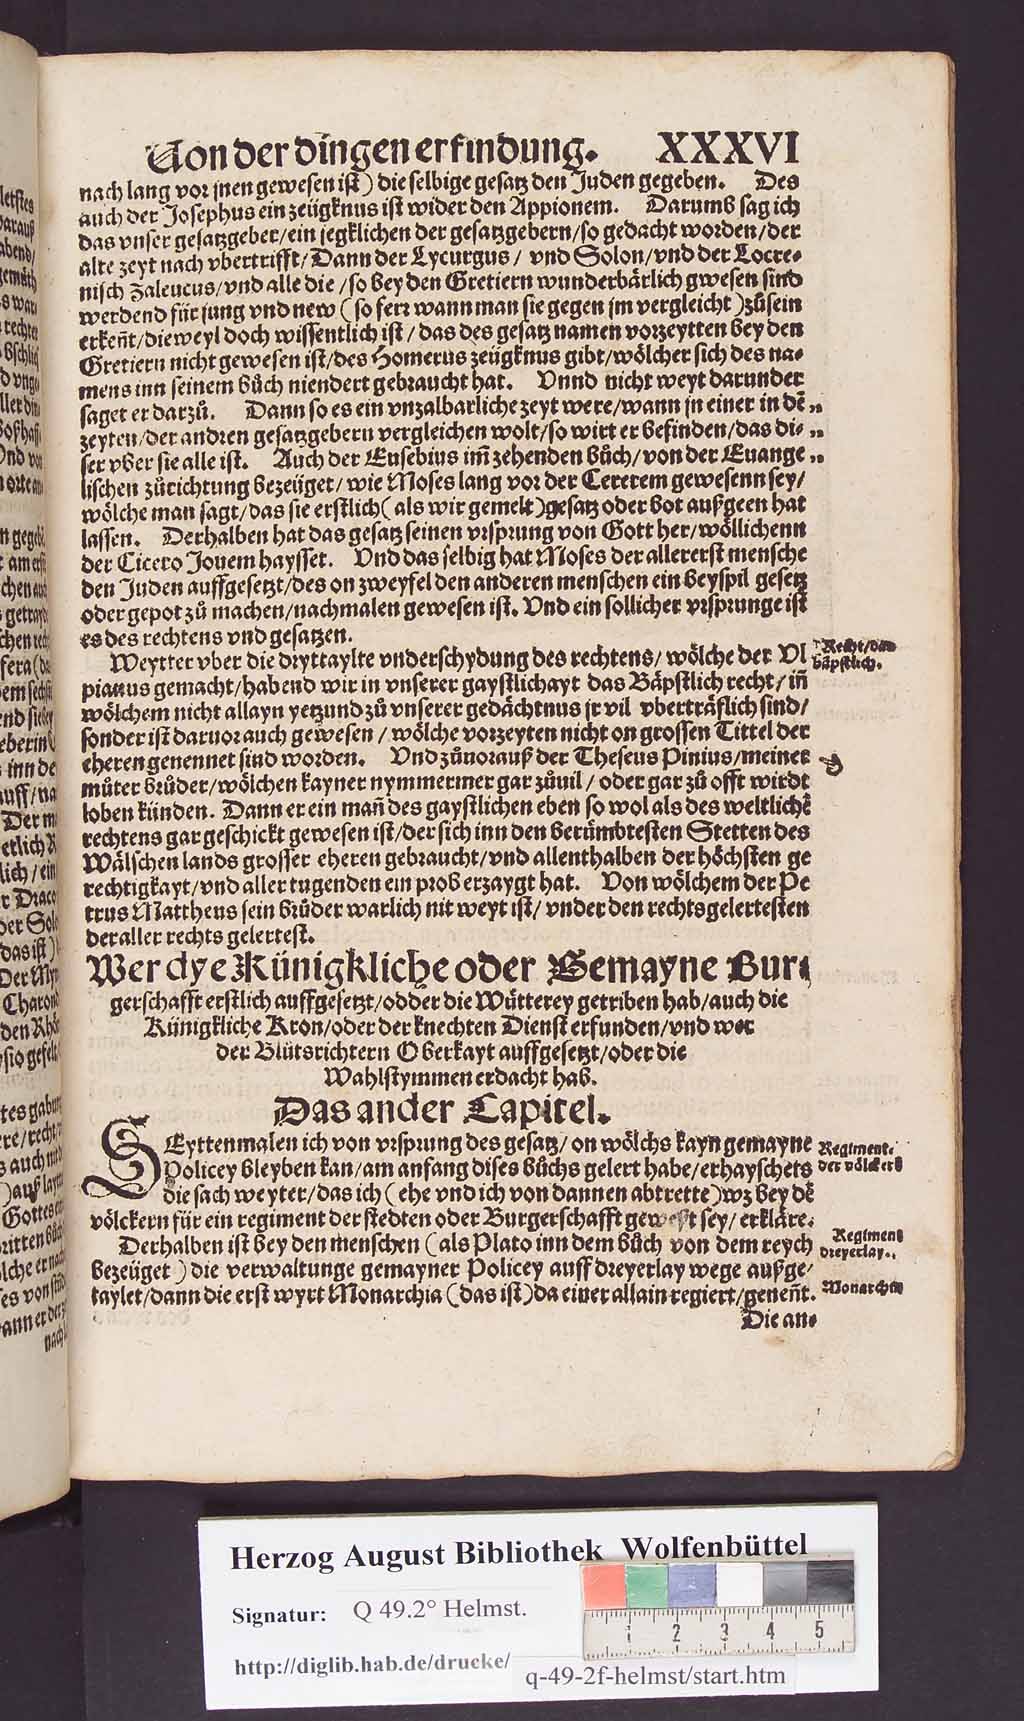 Von der dingen erfindung. XXXVI
nach lang vor jnen gewesen ist) die selbige gesatz den Juden gegeben. Des
auch der Josephus ein zeügknus ist wider den Appionem. Darumb sag ich
das vnser gesatzgeber/ein jegklichen der gesatzgebern/so gedacht worden/der
alte zeyt nach vbertrifft/Dann der Lycurgus/ vnd Solon/vnd der Locre-
nisch Zaleucus/vnd alle die/so bey den Gretiern wunderbärlich gwesen sind
werdend für jung vnd new (so ferr wann man sie gegen jm vergleicht) zů sein
erkeñt/dieweyl doch wissentlich ist/das des gesatz namen vorzeytten bey den
Gretiern nicht gewesen ist/des Homerus zeügknus gibt/wölcher sich des na-
mens inn seinem bůch niendert gebraucht hat. Vnnd nicht weyt darunder
saget er darzů. Dann so es ein vnzalbarliche zeyt were/wann jn einer in dẽ
zeyten/der andren gesatzgebern vergleichen wolt/so wirt er befinden/das di-
ser vber sie alle ist. Auch der Eusebius im̃ zehenden bůch/von der Euange
lischen zůrichtung bezeüget/wie Moses lang vor der Cererem gewesenn sey/
wölche man sagt/das sie erstlich (als wir gemelt) gesatz oder bot außgeen hat
lassen. Derhalben hat das gesatz seinen vrsprung von Gott her/wöllichenn
der Cicero Jouem haysset. Vnd das selbig hat Moses der allererst mensche
den Juden auffgesetzt/des on zweyfel den anderen menschen ein beyspil gesetz
oder gepot zů machen/nachmalen gewesen ist. Vnd ein sollicher vrsprunge ist
es des rechtens vnd gesatzen.
Weytter vber die dryttaylte vnderschydung des rechtens/wölche der Vl
pianus gemacht/habend wir in vnserer gaystlichayt das Bäpstlich recht/iñ
wölchem nicht allayn yetzund zů vnserer gedächtnus jr vil vberträflich sind/
sonder ist daruor auch gewesen/wölche vorzeyten nicht on grossen Tittel der
eheren genennet sind worden. Vnd zůuorauß der Theseus Pinius/meiner
můter brůder/wölchen kayner nymmermer gar zůuil/oder gar zů offt wirdt
loben künden. Dann er ein mañ des gaystlichen eben so wol als des weltlichẽ
rechtens gar geschickt gewesen ist/der sich inn den berümbtesten Stetten des
Wälschen lands grosser eheren gebraucht/vnd allenthalben der höchsten ge
rechtigkayt/vnd aller tugenden ein prob erzaygt hat. Von wölchem der Pe
trus Mattheus sein brůder warlich nit weyt ist/vnder den rechtsgelertesten
der aller rechts gelertest.
Recht/das
bäpstlich.
Wer dye Künigkliche oder Gemayne Bur-
gerschafft erstlich auffgesetzt/odder die Wütterey getriben hab/auch die
Künigkliche Kron/oder der knechten Dienst erfunden/vnd wer
der Blůtsrichtern Oberkayt auffgesetzt/oder die
Wahlstymmen erdacht hab.
Das ander Capitel.
SEyttenmalen ich von vrsprung des gesatz/on wölchs kayn gemayne
Policey bleyben kan/am anfang dises bůchs gelert habe/erhayschets
die sach weyter/das ich (ehe vnd ich von dannen abtrette) wz bey dẽ
völckern für ein regiment der stedten oder Burgerschafft gewest sey/erkläre.
Derhalben ist bey den menschen (als Plato inn dem bůch von dem reych
bezeüget) die verwaltunge gemayner Policey auff dreyerlay wege außge-
taylet/dann die erst wyrt Monarchia (das ist) da einer allain regiert/geneñt.
Regiment
der völckern
Regiment
dreyerlay.
Monarchia
Die an-
Herzog August Bibliothek Wolfenbüttel
Signatur: Q 49.2° Helmst.
http://diglib.hab.de/drucke/ q-49-2f-helmst/start.htm
1 2 3 4 5